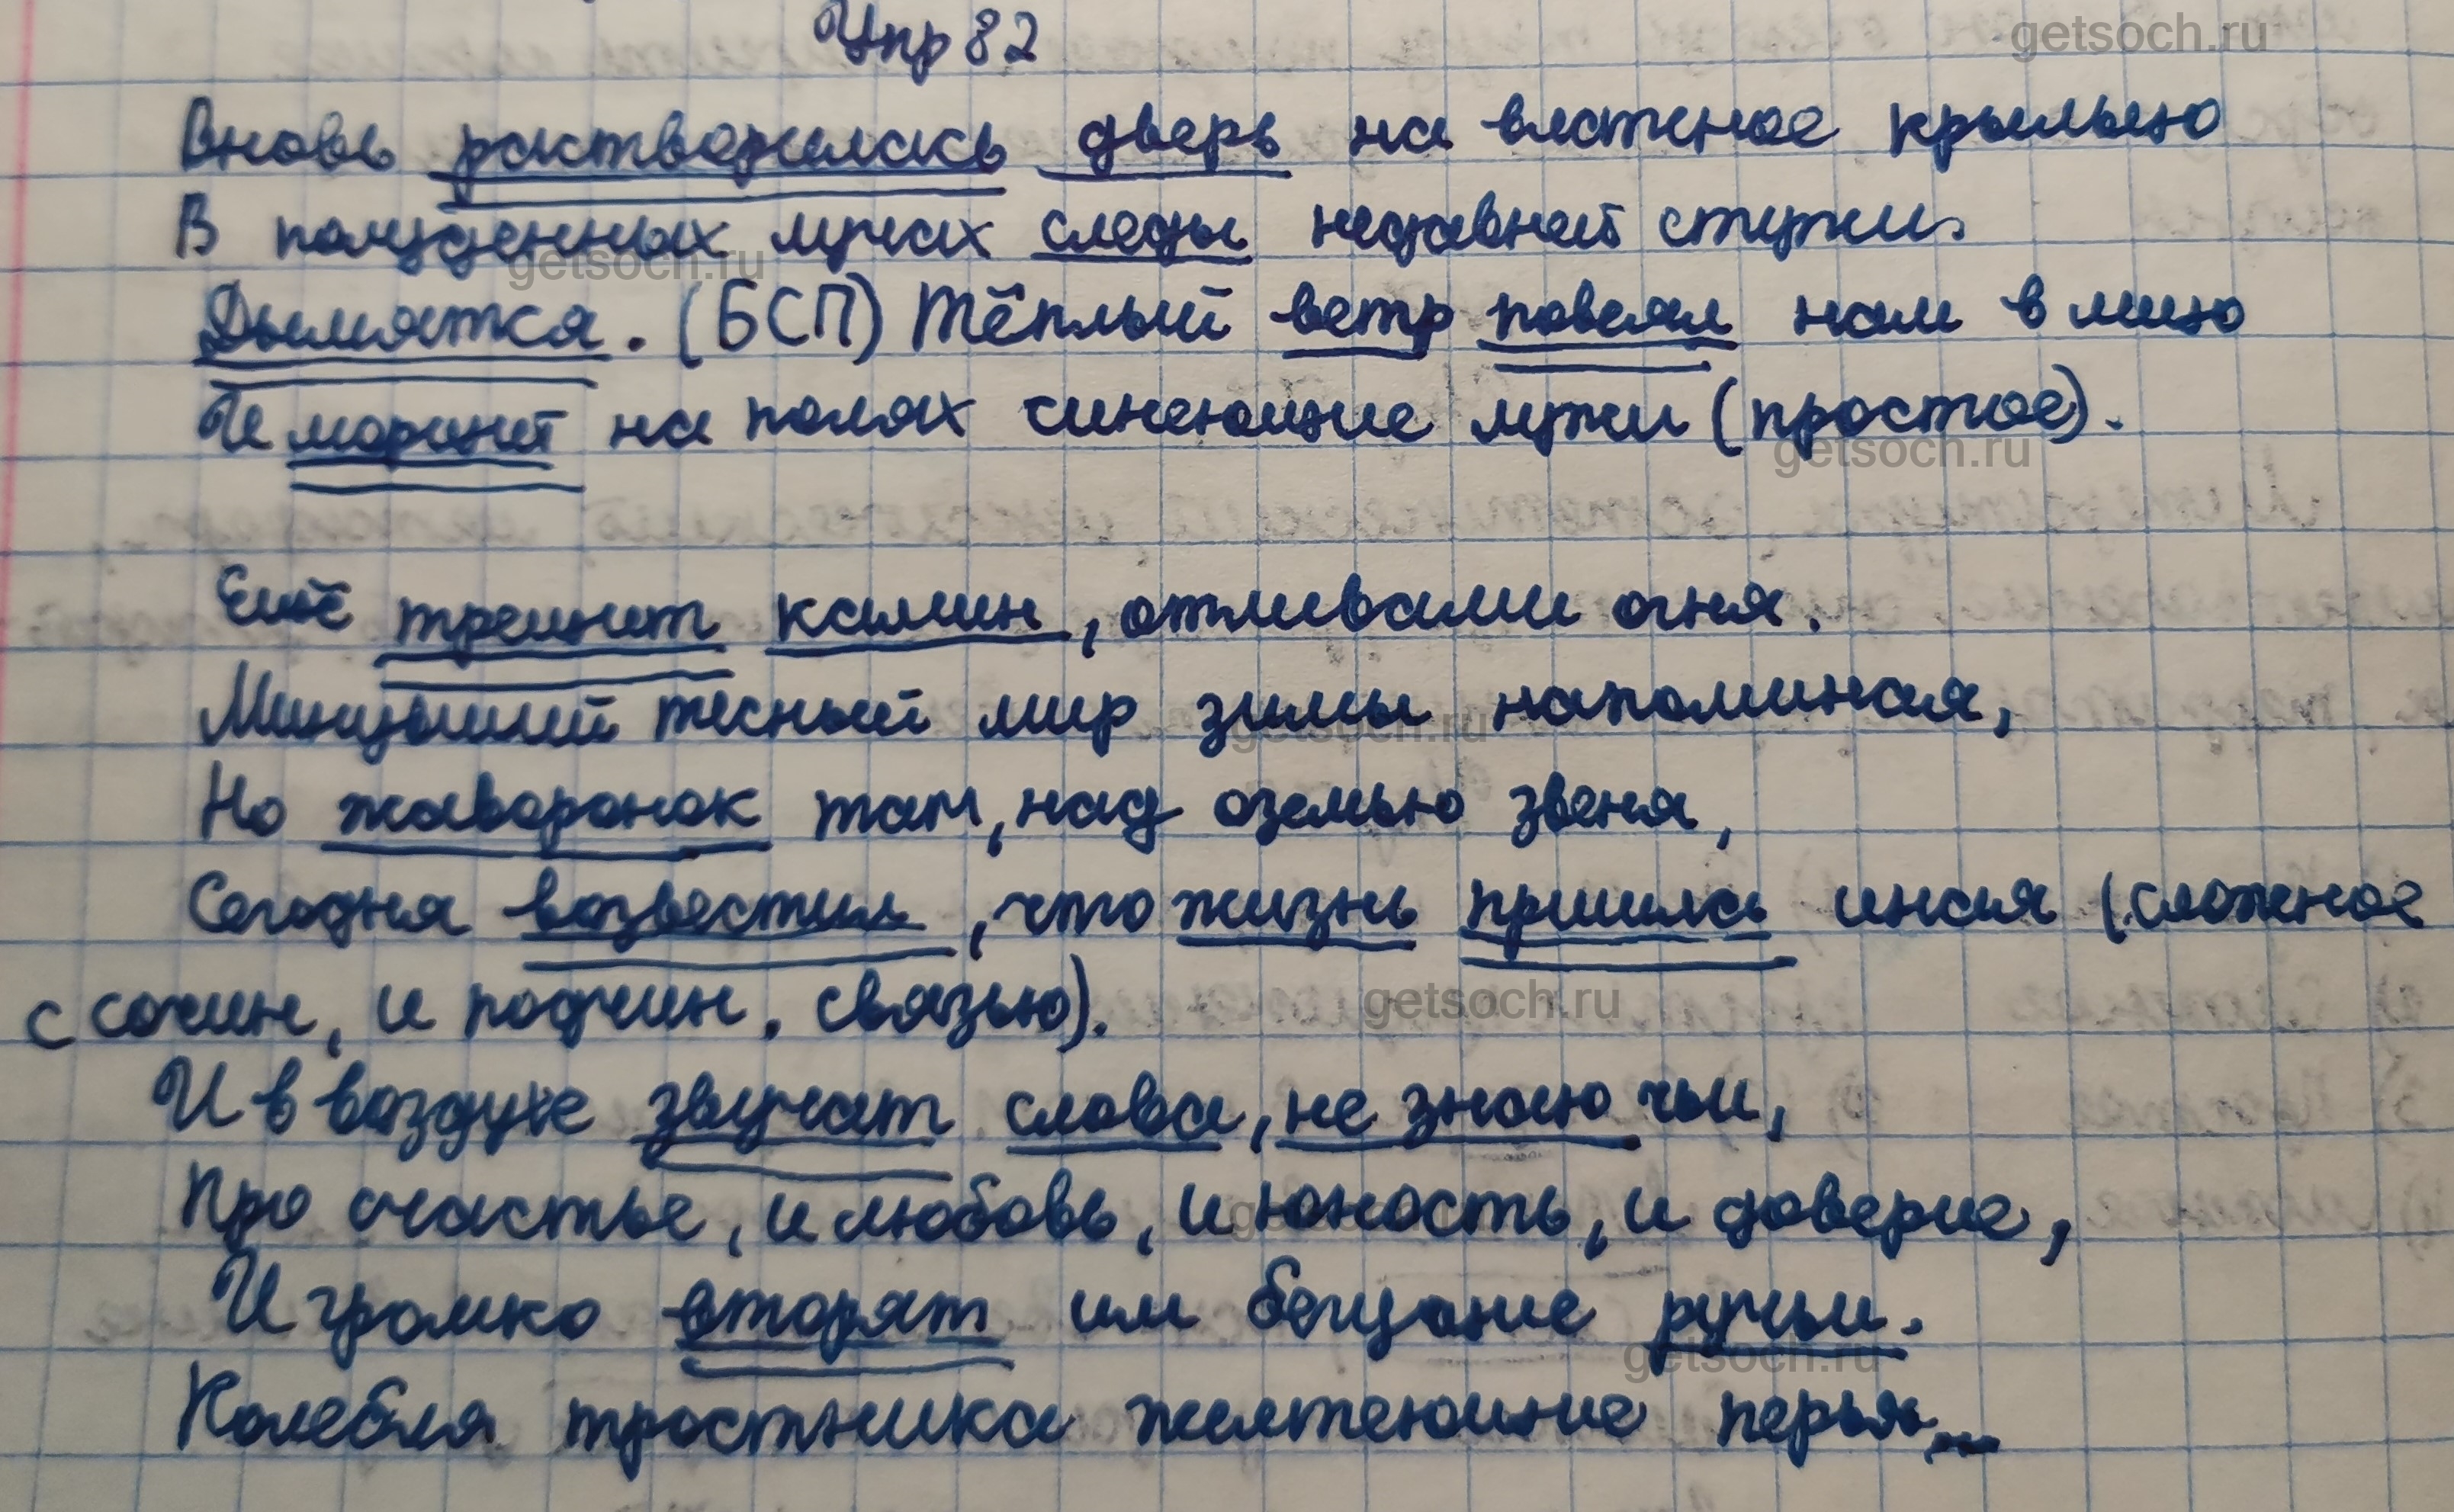 Упр 82
getsoch.ru
Вновь растворилась дверь на влажное крыльцо
В полуденных лучах следы недавней стужи.
getsoch.ru
Дымятся. (БСП) Тёплый ветр повеял нам в лицо
И морщит на полях синеющие лужи (простое).
getsoch.ru
Ещё трещит камин, отливами огня.
Минувший тесный мир зимы напоминая,
getsoch.ru
Но жаворонок там, над оземью звеня,
Сегодня возвестил, что жизнь пришла иная (сложное
с сочин, и подчин. связью).
getsoch.ru
И в воздухе звучат слова, не знаю чьи,
Про счастье, и любовь, и юность, и доверие,
getsoch.ru
И громко вторят им бегущие ручьи.
getsoch.ru
Колебля тростника желтеющие перья...